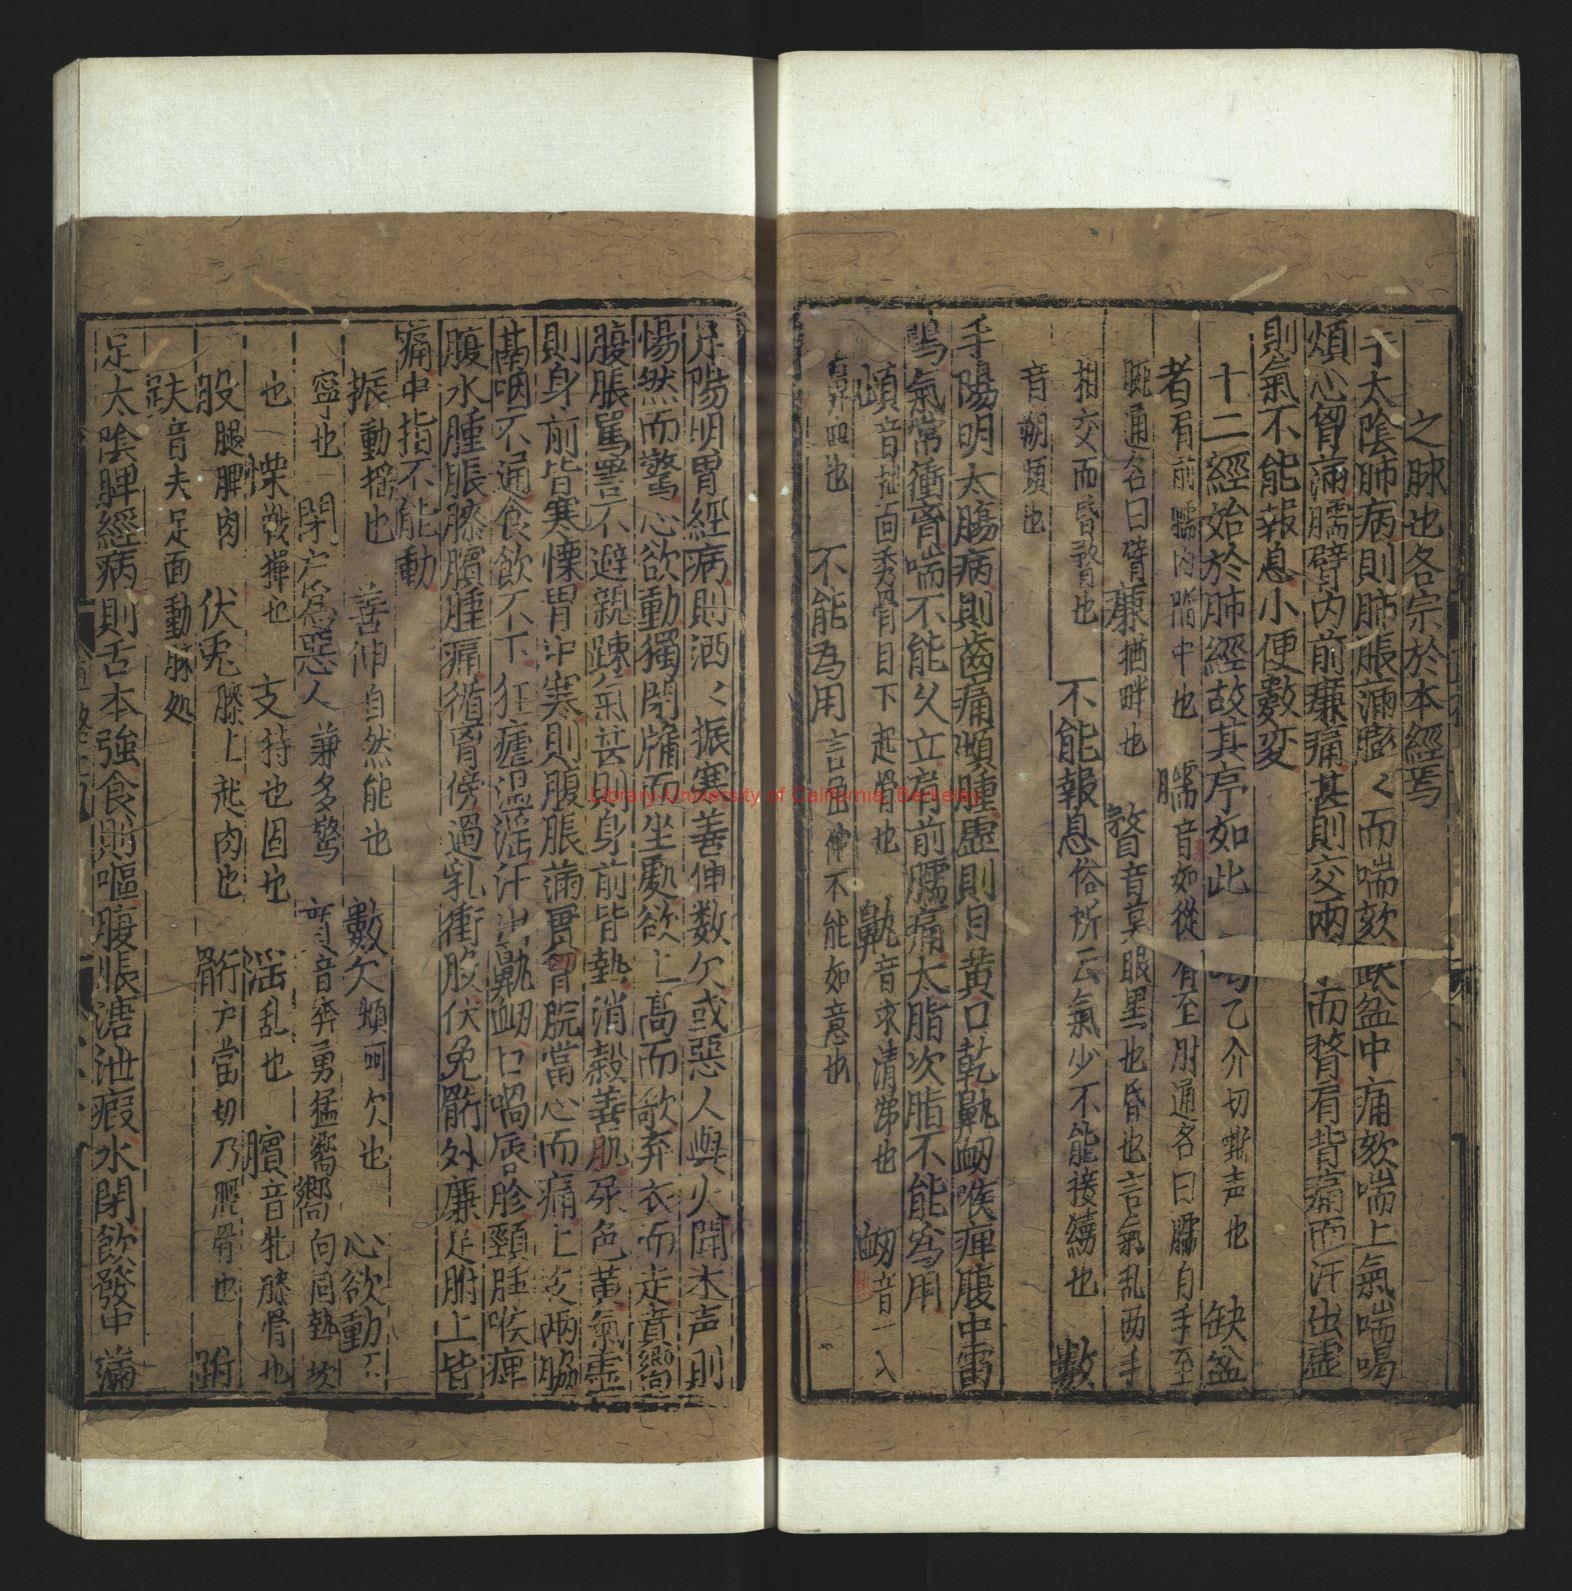 之脉也各宗於本經焉
手太陰肺病則肺脹滿膨々而喘欬缺盆中痛欬喘上氣喘喝
煩心胷滿臑臂内前亷痛甚則交兩而瞀肩背痛而汗出虚
則氣不能報息小便數变
十二經始於肺經故其序如此 乙介切嘶声也 缺盆
者有前臑内䐃中也 臑音如從有至肘通名曰臑自手至
䏿通名曰臂 亷猶畔也 瞀音莫眼黑也昏也言氣乱两手
相交而昏瞀也 不能報息俗所云氣少不能接續也 數
音朔頻也
手陽明太膓病則齒痛䪼腫虚則目黄口乾鼽衂喉痺腹中雷
鳴氣常衝胷喘不能乆立肩前臑痛太脂次脂不能為用
䪼音拙面秀骨目下起骨也 鼽音求清涕也 衂音一入
也 不能為用言屈伸不能如意也
足陽明胃經病則洒々振寒善伸数欠或惡人與火聞木声則
惕然而驚心欲動獨閉牗而坐甚欲上高而歌弃衣而走賁嚮
腹脹罵詈不避親踈氣甚則身前皆熱消穀善肌尿色黄氣虚
則身前皆寒慄胃中寒則腹脹滿胃脘當心而痛上支两脇
鬲咽不通食飲不下狂瘧温淫汗出鼽衂口喎唇胗頸腫喉痺
腹水腫脹膝臏腫痛循胷傍過乳衝股伏兔骭外亷足胕上皆
痛中指不能動
振動摇也 善伸自然能也 數欠頻呵欠也 心欲動不
寧也 閉户為惡人兼多驚 音奔勇猛 嚮向同熱
也 慄戰獋也 支持也固也 淫乱也 臏音牝膝骨也
股腿髀肉 伏兔膝上起肉也 骭户當切乃脛骨也 跗
趺音夫足面動脉処
足太陰脾經病則舌本強食則嘔腹脹溏泄瘕水閉飲發中滿
Library University of California, Berkeley